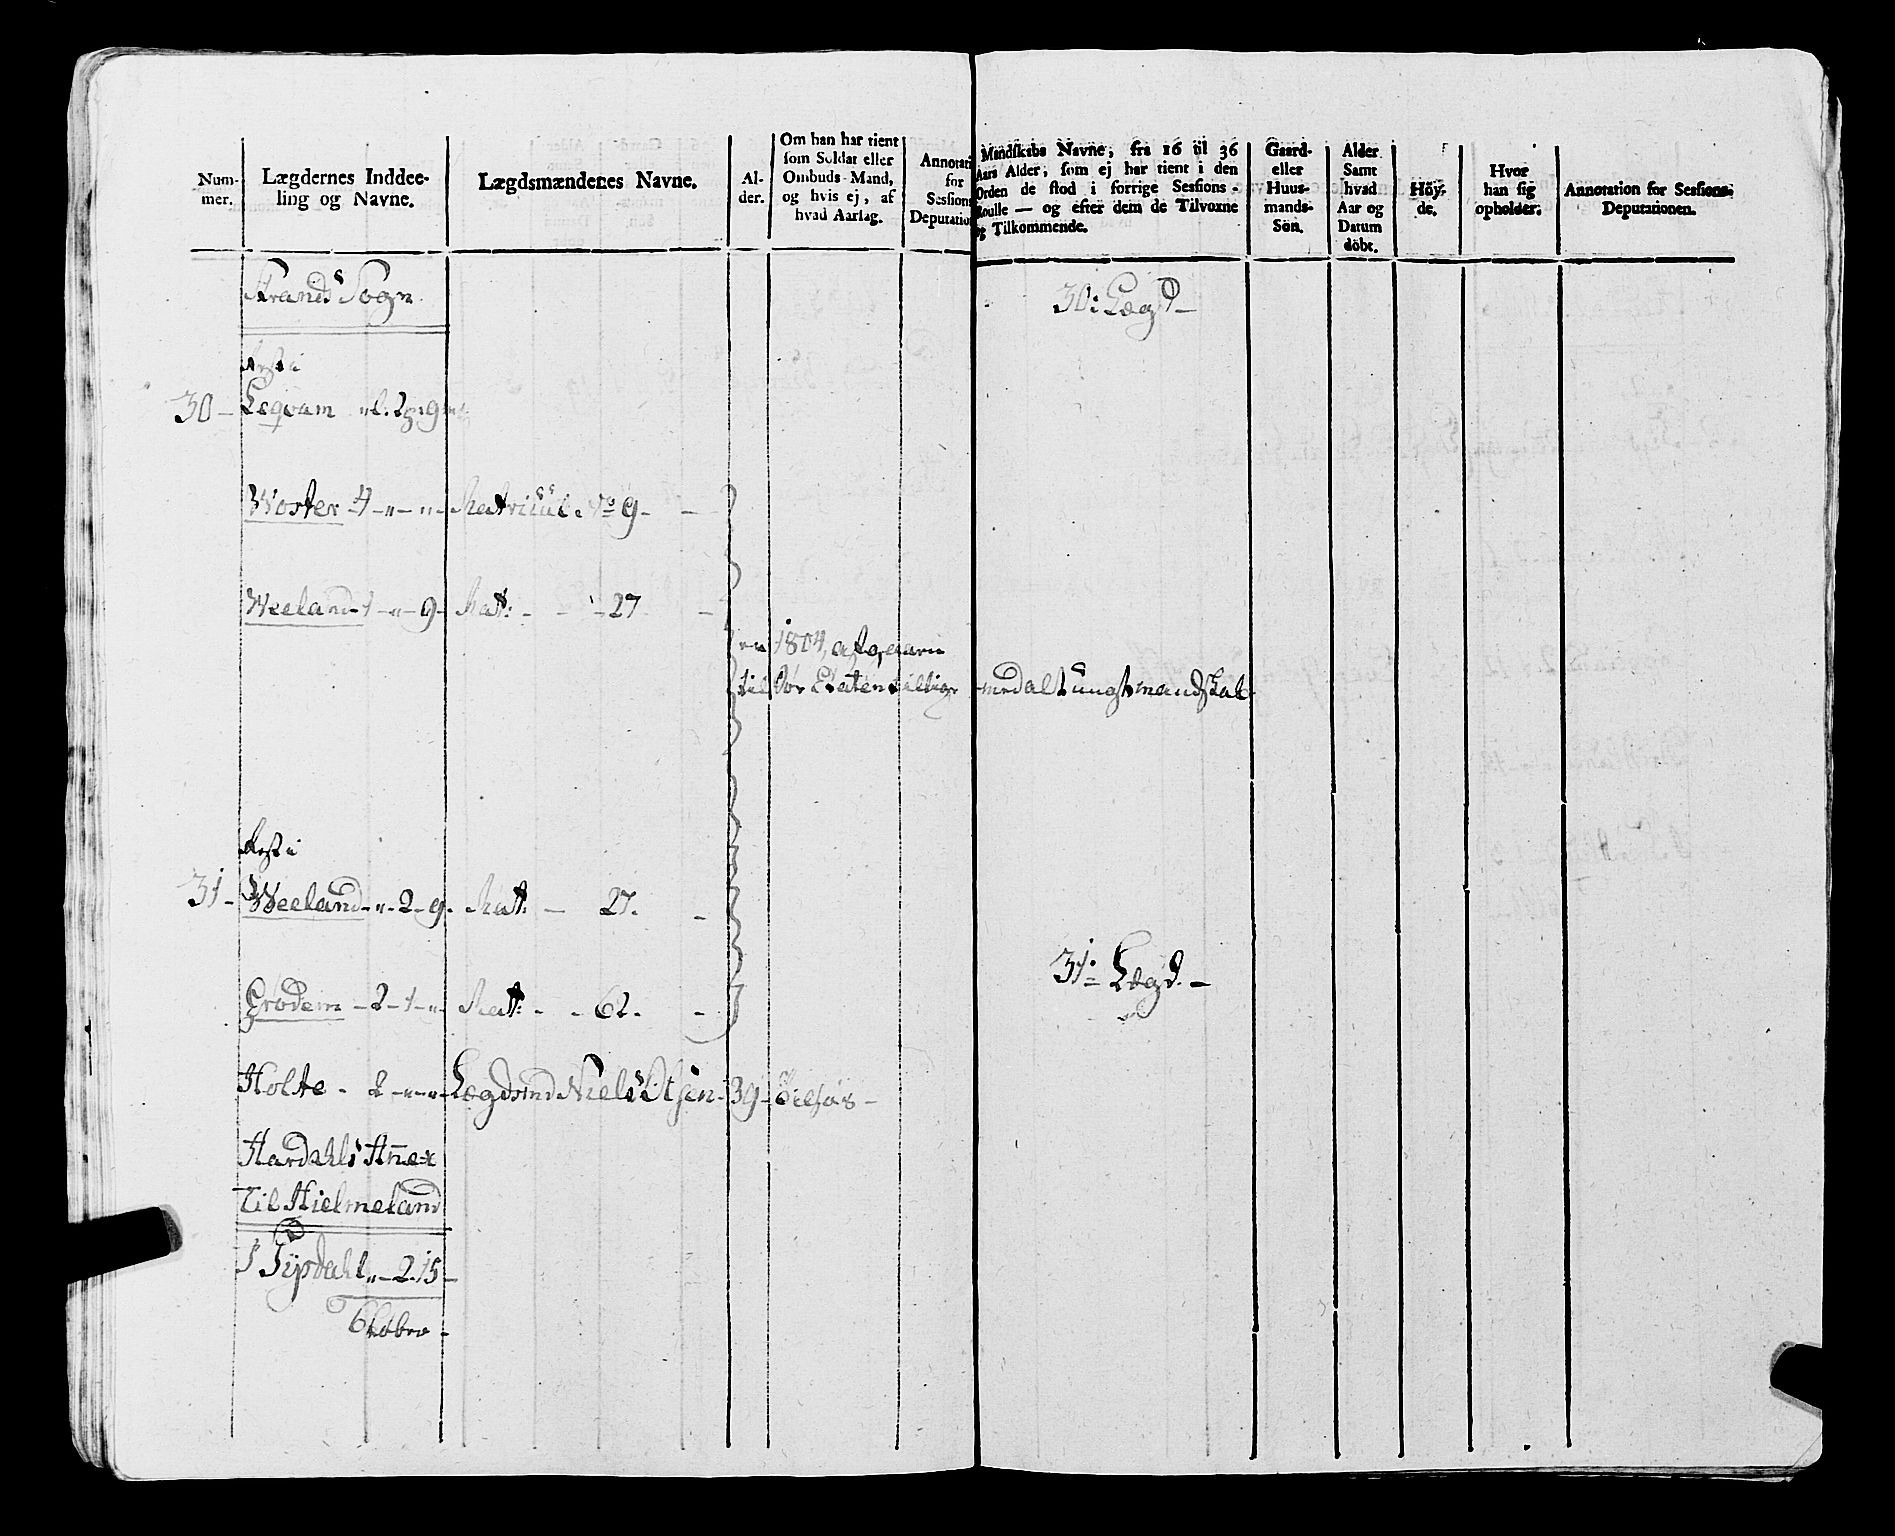 Num-
mer.
Lægdernes Inddee-
ling og Navne.
Lægdsmændenes Navne.
Al-
der.
Om han har tient
som Soldat eller
Ombuds-Mand,
og hvis ej, af
hvad Aarsag.
Annotati
for
Sessions
Deputation
Mandskabs Navne, fra 16 til 36
Aars Alder, som ej har tient i den
Orden de stod i forrige Sessions-
Roulle — og efter dem de Tilvoxne
og Tilkommende.
Gaard-
eller
Huus-
mands-
Søn.
Alder
Samt
hvad
Aar og
Datum
döbt.
Höy-
de.
Hvor
han sig
opholder.
Annotation for Sessions-
Deputationen.
Strands Sogn
30: Lægd
Rest i
30 - Leqvam
Woster 4 - " - " - Matricul No 9 -
Weeland - 1 - " - 9 - Mat: - 27
er 1804, afgaaen
til Søe Etaten tillige med alt ungt mandskab
Rest i
31 - Weeland - " - 2 - 9 - Mat: - 27.
31: Lægd. -
Grødem - 2 - 1 - " - Mat: - - 62. -
Holte - 2 - " - " - Lægdsmd Niels Olsen - 39
Hardahls Annex
Til Hielmeland
I Tysdahl " - 2 - 15 -